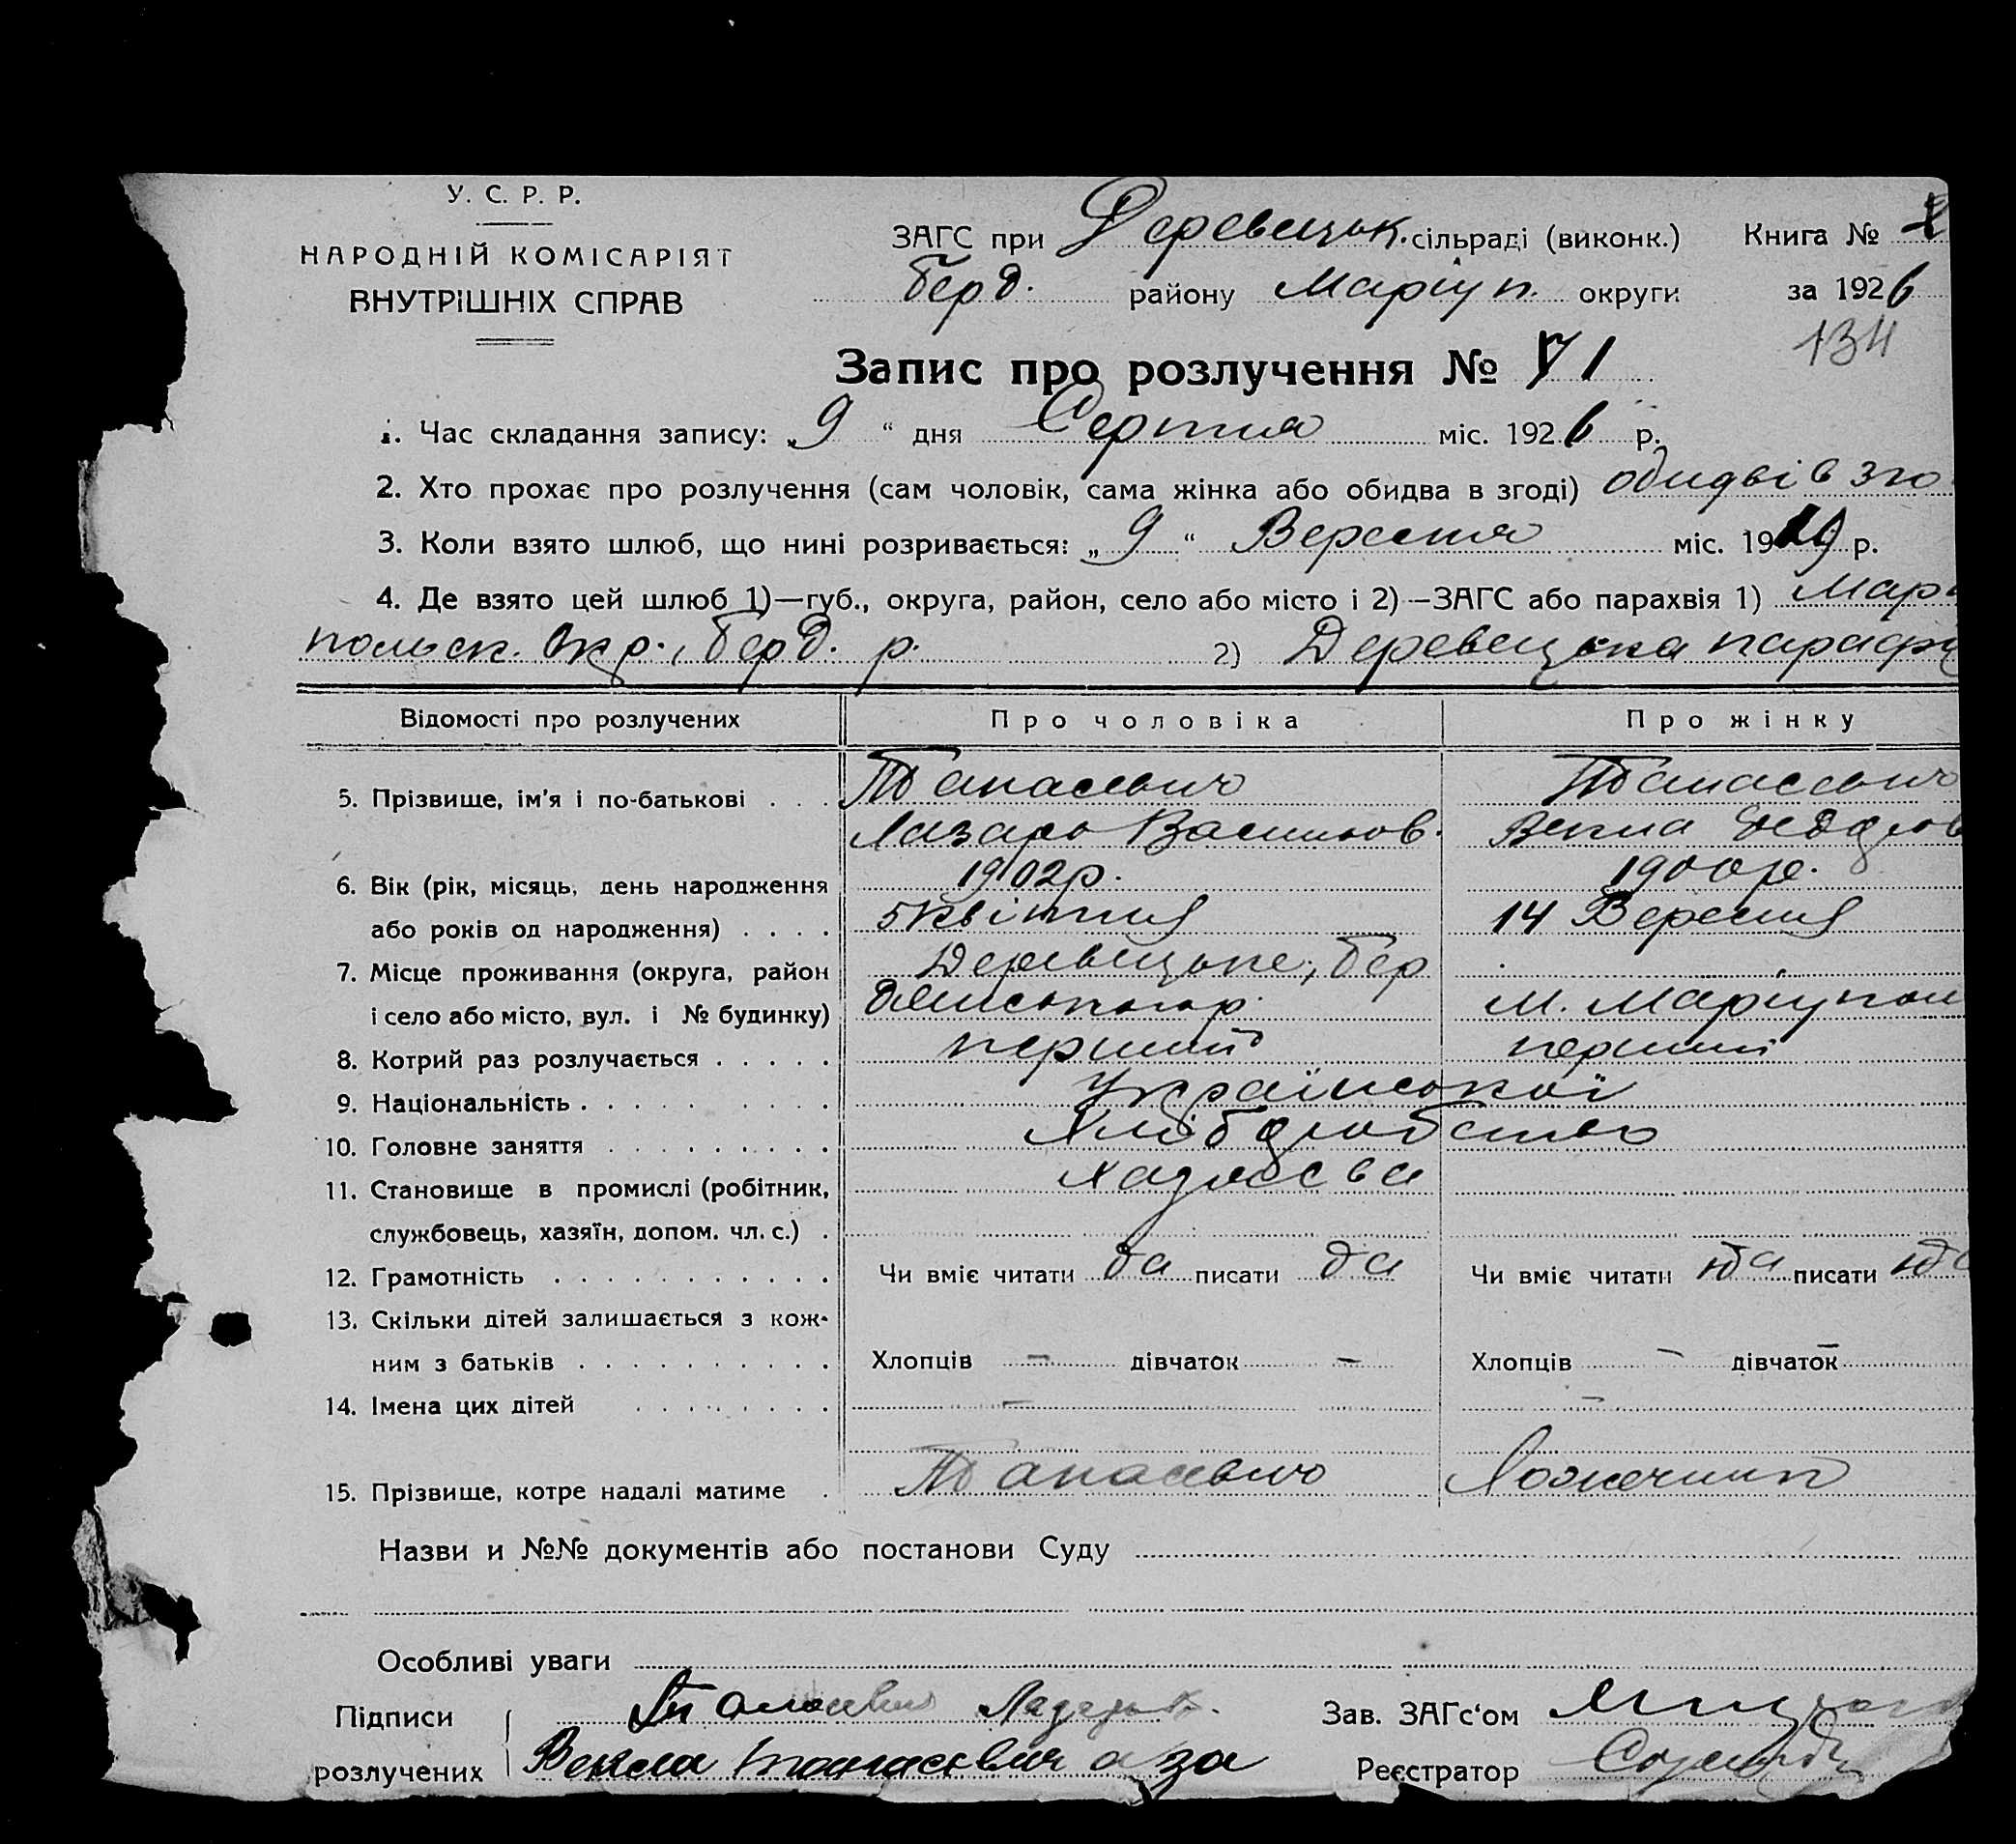 У. С. Р. Р.
НАРОДНІЙ КОМІСАРІЯТ
ВНУТРІШНІХ СПРАВ
ЗАГС при Деревецьк. сільраді (виконк.) Книга №
Берд. району Маріуп. округи за 1926
134
Запис про розлучення № 71
1. Час складання запису: „9“ дня Серпня міс. 1926 р.
2. Хто прохає про розлучення (сам чоловік, сама жінка або обидва в згоді) обидві в зго
3. Коли взято шлюб, що нині розривається: „9“ Вересня міс. 1919 р.
4. Де взято цей шлюб 1)—губ., округа, район, село або місто і 2)—ЗАГС або парахвія 1) Марі
польск. Окр., Берд. р. 2) Деревецька параф
Відомості про розлучених Про чоловіка Про жінку
5. Прізвище, ім'я і по-батькові . . . Танасевич Танасевич
Лазарь Васильов. Векла Федоров
6. Вік (рік, місяць, день народження 1902р. 1900р.
або років од народження) . . . . 5 Квітня 14 Вересня
7. Місце проживання (округа, район Деревецьке, Бер
і село або місто, вул. і № будинку) дянського р. М. Маріупол
8. Котрий раз розлучається . . . . . перший перший
9. Національність . . . . . . . . Української
10. Головне заняття . . . . . . . . . Хліборобство
11. Становище в промислі (робітник,
службовець, хазяїн, допом. чл. с.) .
12. Грамотність . . . . . . . . . . . Чи вміє читати да писати да Чи вміє читати да писати да
13. Скільки дітей залишається з кож-
ним з батьків . . . . . . . . . . Хлопців — дівчаток — Хлопців — дівчаток —
14. Імена цих дітей . . . . . . . — —
15. Прізвище, котре надалі матиме . Танасевич
Назви и №№ документів або постанови Суду
Особливі уваги
Підписи Танасевич Зав. ЗАГс'ом
розлучених Векла Танасевич а за Реєстратор